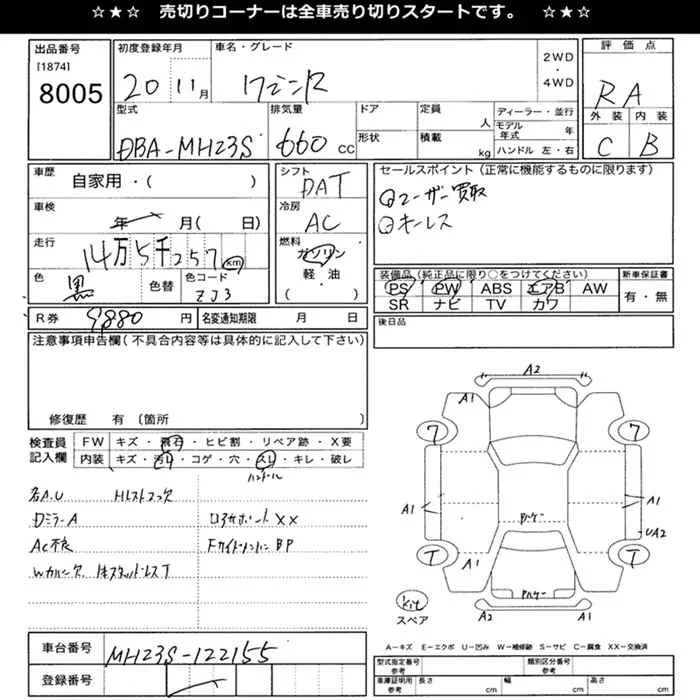 ☆★☆ 売切りコーナーは全車売り切りスタートです。 ☆★☆
出品番号
[1874]
8005
初度登録年月
20 11月
車名・グレード
ワゴンR
2WD
・
4WD
評価点
RA
外装 内装
C B
型式
DBA-MH23S
排気量
660cc
ドア
形状
定員
人
積載
kg
ディーラー・並行
モデル年式 年
ハンドル 左・右
車歴
自家用・( )
車検
年 月( 日)
走行
14万5千257km
色
黒
色替
色コード
ZJ3
シフト
DAT
冷房
AC
燃料
ガソリン
軽・油
( )
セールスポイント(正常に機能するものに限ります)
①ユーザー買取
②キーレス
装備品(純正品に限り○をつけてください)
PS PW ABS エアB AW
SR ナビ TV カワ
新車保証書
有・無
R券 9,880 円
名変通知期限 月 日
後日品
注意事項申告欄(不具合内容等は具体的に記入して下さい)
修復歴 有(箇所
検査員
記入欄
FW キズ・飛石・ヒビ割・リペア跡・X要
内装 キズ・汚レ・コゲ・穴・スレ・キレ・破レ
ハンドル
各A.U
DミラーA
AC不良
XX
BP
A2
A1
A1
7
7
A1
A1
UA2
T
T
A1
A2
A1
スペア
A=キズ E=エクボ U=凹み W=補修跡 S=サビ C=腐食 XX=交換済
型式指定番号 参考
類別区分番号 参考
車庫証明用 参考
長さ cm
幅 cm
高さ cm
車台番号
MH23S-122155
登録番号